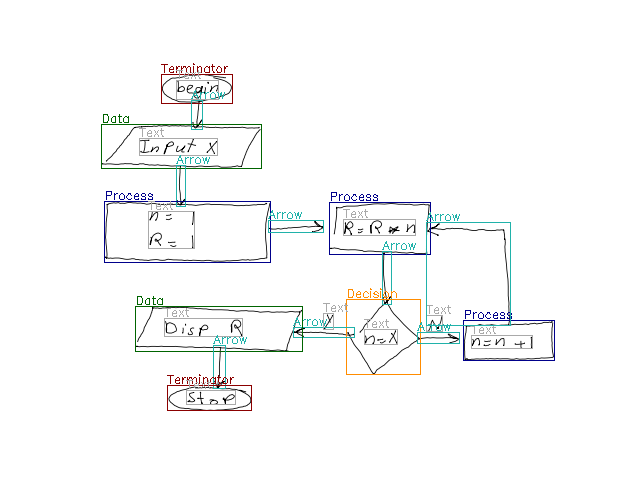 Terminator
Text
begin
Arrow
Data
Text
Input X
Arrow
Process
Text
n = 1
R = 1
Arrow
Process
Text
R = R * n
Arrow
Arrow
Decision
Text
n = X
Text
Y
Arrow
Text
N
Arrow
Process
Text
n = n + 1
Data
Text
Disp R
Arrow
Terminator
Text
Stop